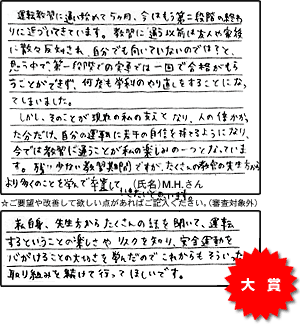 運転教習に通い始めて5ヶ月、今はもう第二段階の終わ
りに近づいてきています。教習に通う以前は友人や家族
に散々反対され、自分でも向いていないのでは?と、
思う中で、第一段階での実車では一回で合格がもら
うことができず、何度も学科のやり直しをすることにな
ってしまいました。
しかし、そのことが現在の私の支えとなり、人の倍かかっ
た分だけ、自分の運転に若干の自信を持てるようになり、
今では教習に通うことが私の楽しみの一つとなっていま
す。残り少ない教習期間ですが、たくさんの教官の先生方から
より多くのことを学んで卒業して
いきたいと思います。
(氏名)M.H.さん
☆ご要望や改善して欲しい点があればご記入ください。(審査対象外)
私自身、先生方からたくさんの話を聞いて、運転
するということの楽しさやリスクを知り、安全運転を
心がけることの大切さを学んだのでこれからもそういった
取り組みを続けて行ってほしいです。
大賞